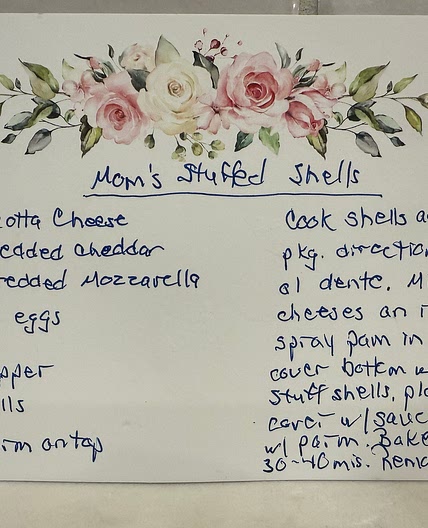 Mom's Stuffed Shells
otta Cheese
edded cheddar
redded Mozzarella
eggs
pper
lls
on top
Cook shells a
pkg. direction
al dente. M
cheeses an
spray pam in
cover bottom
stuff shells, pla
cover w/ sauc
w/ parm. Bake
30-40 mis. Remo